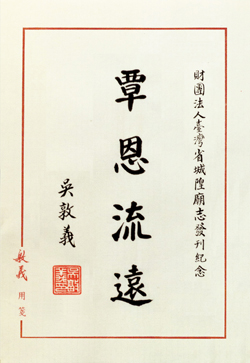 財團法人臺灣省城隍廟志發刊紀念
覃恩流遠
吳敦義
敦義用箋